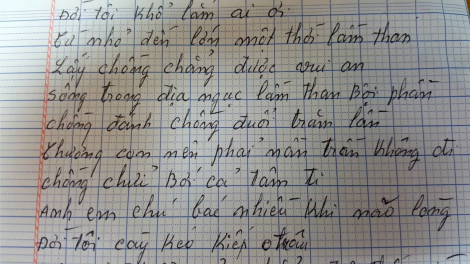 Đời tôi khổ lắm ai ơi
Từ nhỏ đến lớn một thời lầm than
Lấy chồng chẳng được vui an
sống trong địa ngục lầm than Bội phần
chồng đánh chồng đuổi trăm lần
thương con nên phải nấn trần không đi
chồng chửi Bới cả tâm ti
Anh em chú bác nhiều khi não lòng
Đời tôi cay kéo kiếp